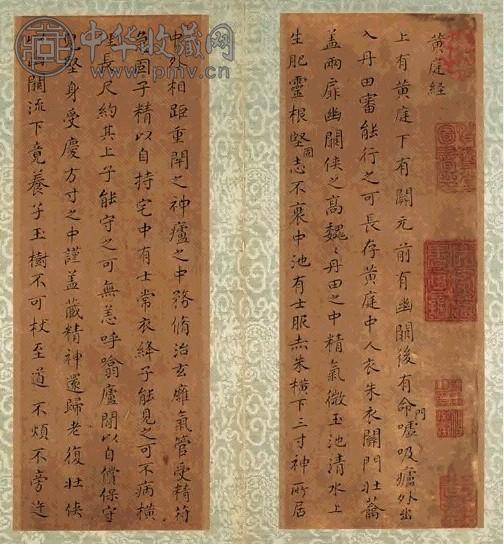 黄庭経
上有黄庭下有關元前有幽關後有命門噓吸廬外出
入丹田審能行之可長存黄庭中人衣朱衣關門壯籥
盖兩扉幽關俠之高魏〻丹田之中精氣微玉池清水上
生肥靈根堅固志不衰中池有士服赤朱橫下三寸神所居
中外相距重閇之神廬之中務脩治玄膺氣管受精符
急固子精以自持宅中有士常衣絳子能見之可不病橫
理長尺約其上子能守之可無恙呼噏廬間以自償保守
完堅身受慶方寸之中謹盖藏精神還歸老復壯俠
幽關流下竟養子玉樹不可杖至道不煩不旁迕
中华收藏网